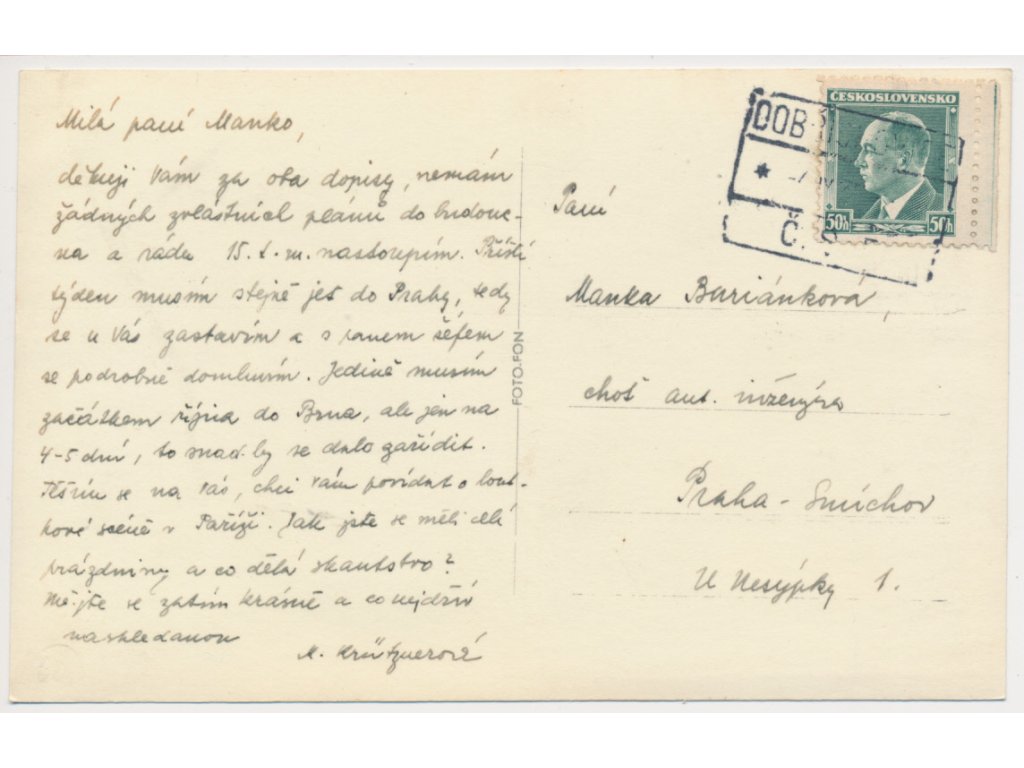 Milá paní Manko,
děkuji Vám za oba dopisy, nemám
žádných zvláštních plánů do budouc-
na a ráda 15. t. m. nastoupím. Příští
týden musím stejně jet do Prahy, tedy
se u Vás zastavím a s panem šéfem
se podrobně domluvím. Jedině musím
začátkem října do Brna, ale jen na
4-5 dní, to snad by se dalo zařídit.
Těším se na Vás, chci Vám povídat o lout-
kové scéně v Paříži. Jak jste se měli celé
prázdniny a co dělá skautstvo?
Mějte se zatím krásně a co nejdřív
nashledanou
M. Krütznerová
FOTO-FON
ČESKOSLOVENSKO
50h 50h
DOB
Č.
Paní
Manka Buriánková,
choť aut. inženýra
Praha - Smíchov
U Nesýpky 1.